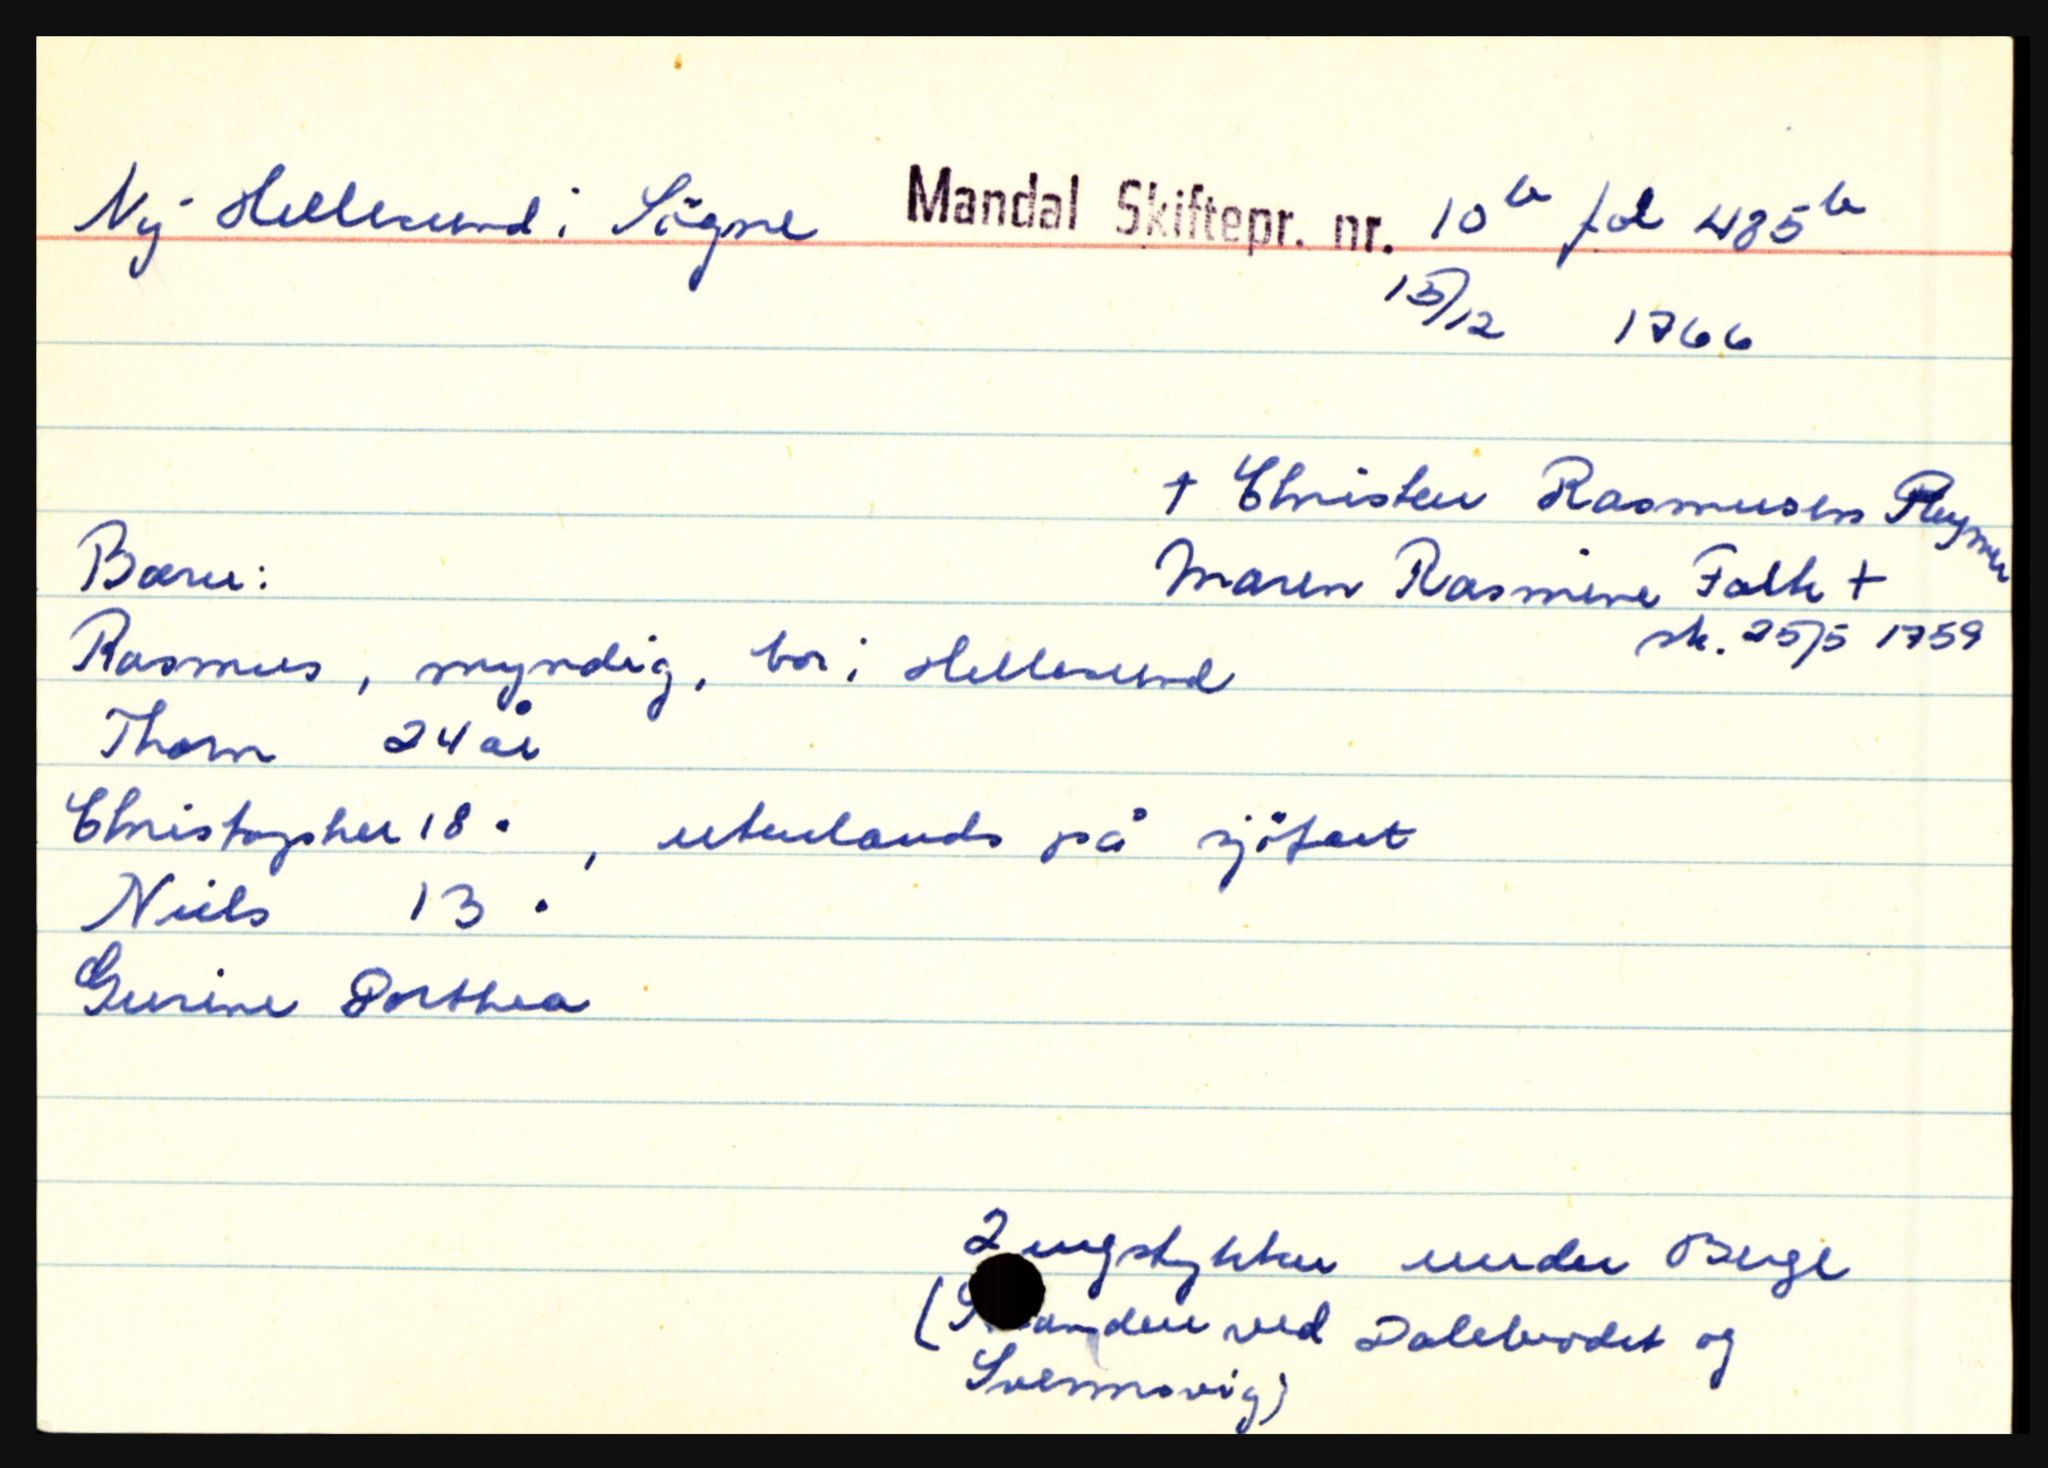 Ny-Hellesund i Sögne Mandal Skiftepr. nr. 10 b fol 485 b
15/12 1766
† Christen Rasmusen
Børn: Maren Rasmine Falk †
sk. 25/5 1759
Rasmus, myndig, bor i Hellesund
Thom 24 år
Christopher 18 ", utenlands på sjöfart
Niels 13 "
Gurine Dorthea
2 engstykker under Berge
( ved Dalebrodet og
Svennevig)